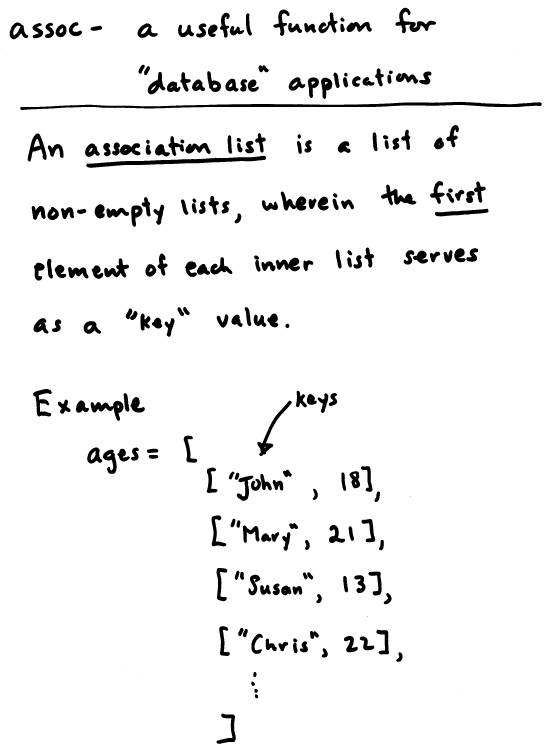 assoc - a useful function for
"database" applications
An association list is a list of
non-empty lists, wherein the first
element of each inner list serves
as a "key" value.
Example
keys
ages = [
["John" , 18],
["Mary", 21],
["Susan", 13],
["Chris", 22],
⋮
]